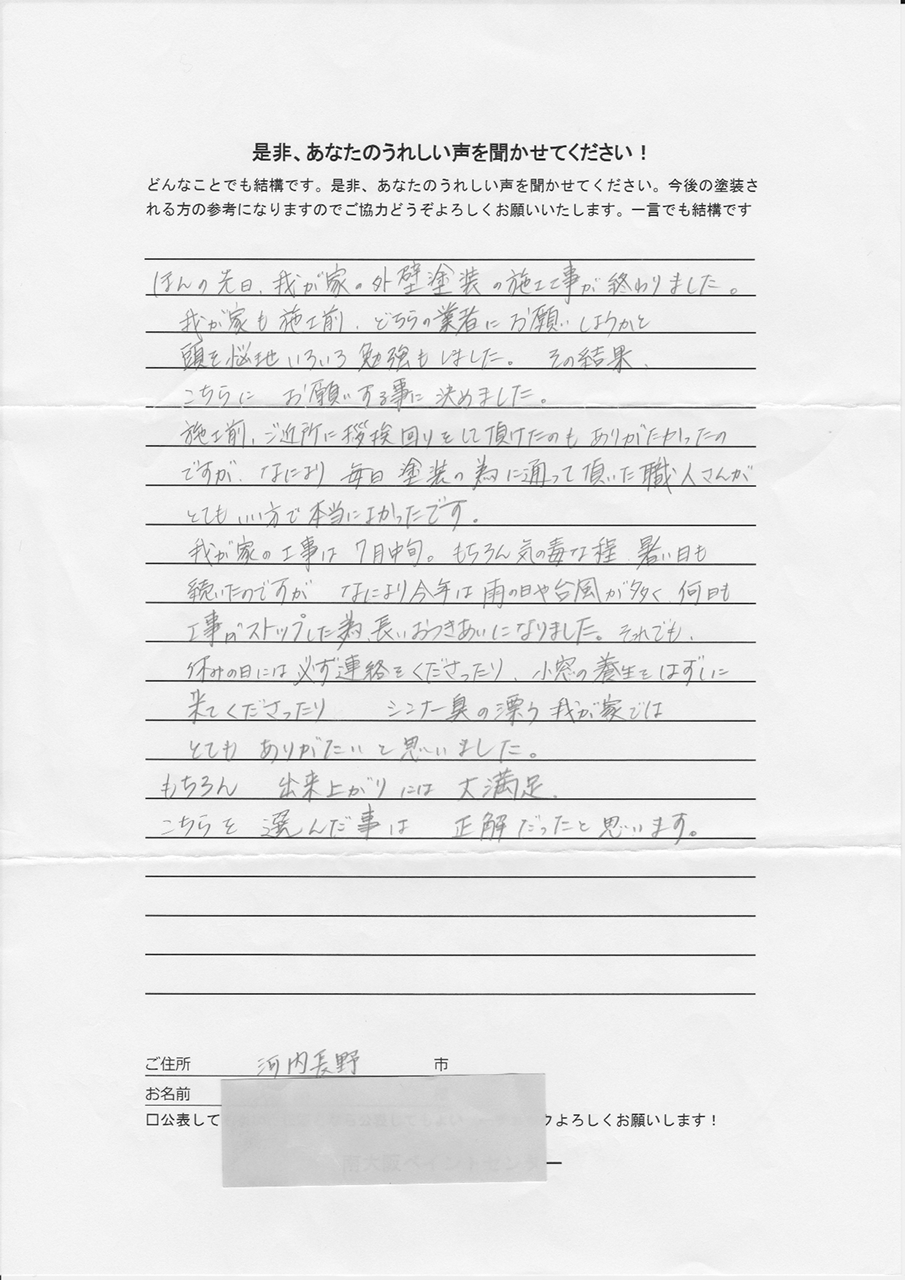 是非、あなたのうれしい声を聞かせてください！
どんなことでも結構です。是非、あなたのうれしい声を聞かせてください。今後の塗装さ
れる方の参考になりますのでご協力どうぞよろしくお願いいたします。一言でも結構です
ほんの先日、我が家の外壁塗装の施工工事が終わりました。
我が家も施工前、どちらの業者にお願いしようかと
頭を悩ませいろいろ勉強もしました。その結果、
こちらに お願いする事に決めました。
施工前、ご近所に挨拶回りをして頂けたのもありがたかったの
ですが、なにより毎日塗装の為に通って頂いた職人さんが
とてもいい方で本当によかったです。
我が家の工事は7月中旬。もちろん気の毒な程、暑い日も
続いたのですが なにより今年は雨の日や台風が多く、何日も
工事がストップした為、長いおつきあいになりました。それでも、
休みの日には必ず連絡をくださったり、小窓の養生をはずしに
来てくださったり シンナー臭の漂う我が家では
とても ありがたいと思いました。
もちろん 出来上がりには 大満足、
こちらを 選んだ事は 正解だったと思います。
ご住所 河内長野 市
お名前
□公表して よろしくお願いします！
南大阪ペイントセンター